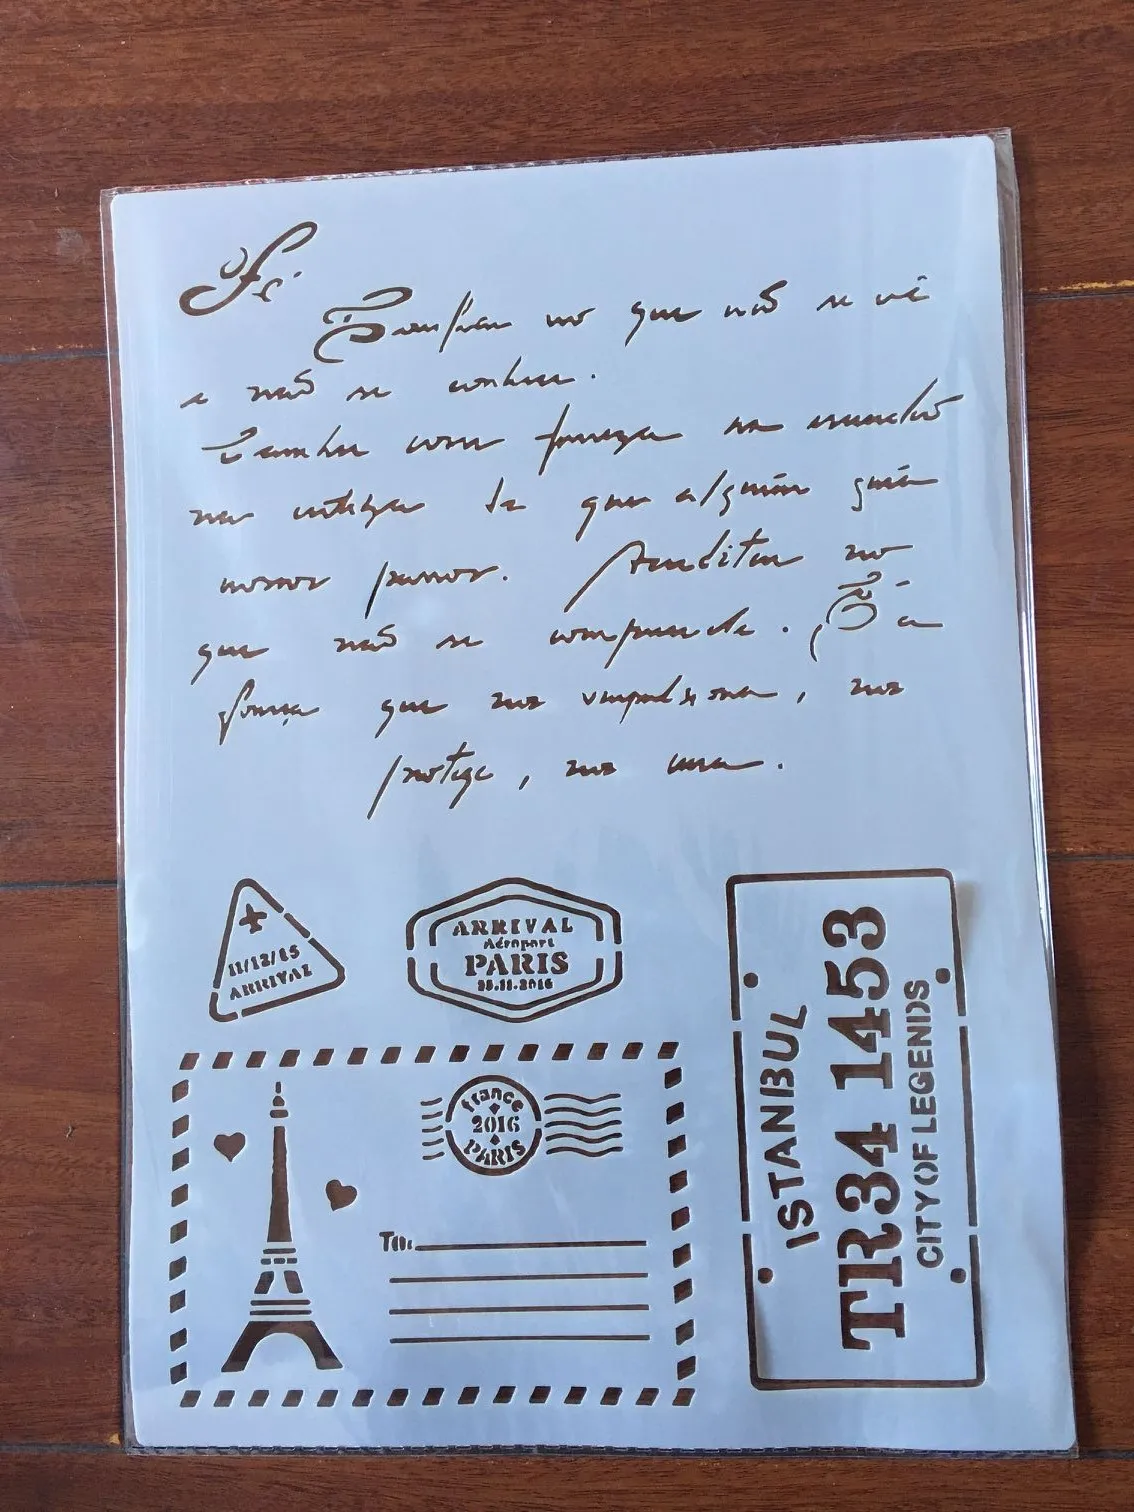 Fé
Confiar no que não se vê
e não se conhece.
Caminhar com firmeza na escuridão
na certeza de que alguém guia
nossos passos. Acreditar no
que não se compreende. É a
força que nos impulsiona, nos
protege, nos
11/12/15
ARRIVAL
ARRIVAL
Aéroport
PARIS
france
2016
PARIS
To:
ISTANBUL
TR34 1453
CITY OF LEGENDS